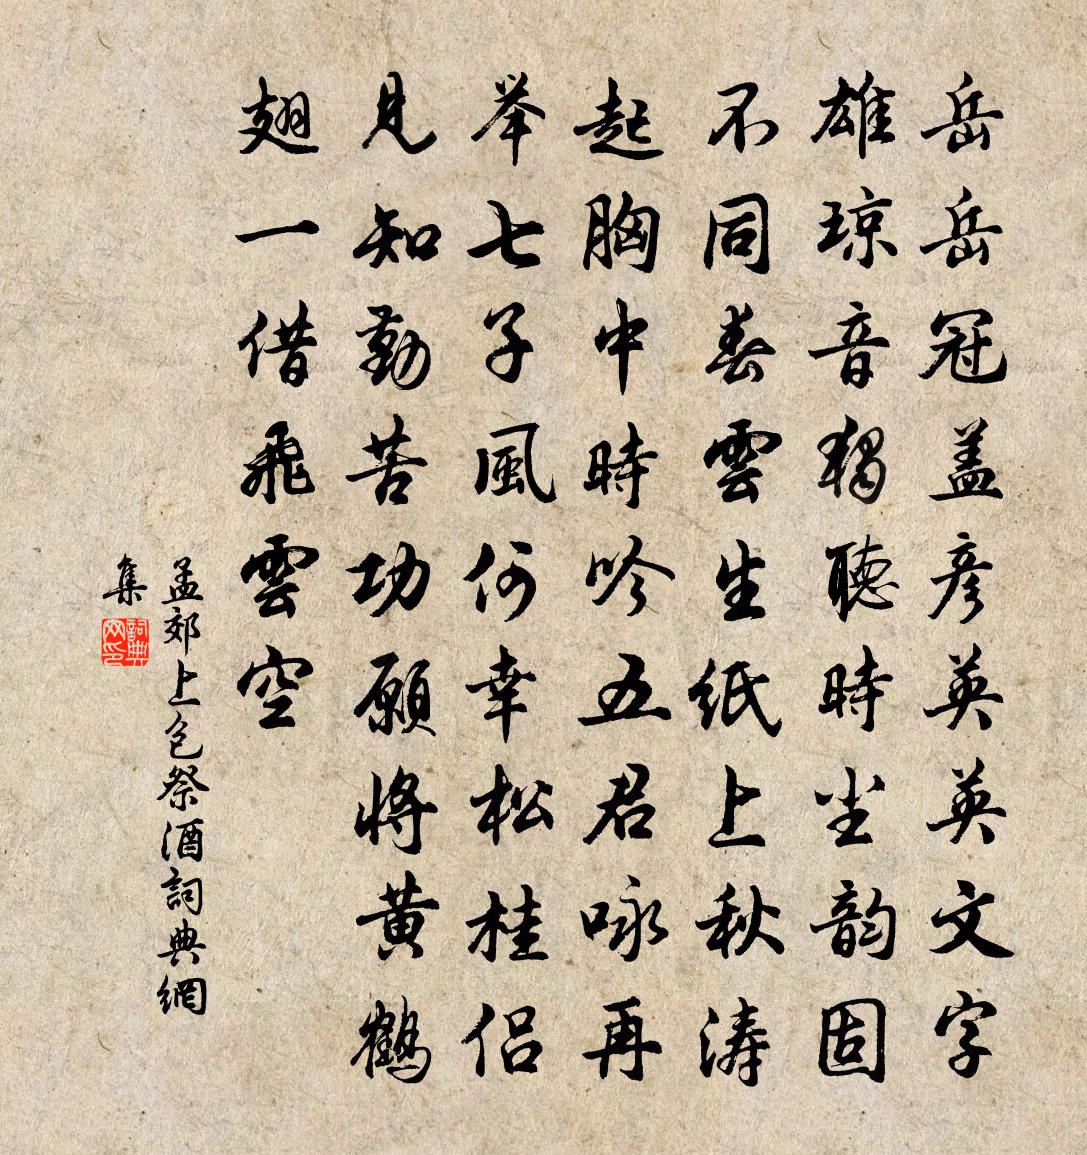 岳岳冠盖彦英英文字
雄琼音獨聽時坐韵固
不同春雲生紙上秋涛
起胸中時吟五君咏再
举七子風何幸松桂侣
見知勤苦功願將黄鶴
翅一借飛雲空
孟郊上包祭酒詞典網
集
詞典网印